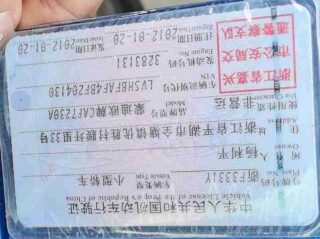 中华人民共和国机动车行驶证
Vehicle License of the People's Republic of China
号牌号码 浙F3331Y 车辆类型 小型轿车
Plate No. Vehicle Type
所有人 杨利平
Owner
住址 浙江省平湖市
Address
使用性质 非营运 品牌型号 蒙迪欧牌CAF7230A
Use Character Model
浙江省嘉兴
市公安局交
通警察支队
车辆识别代号 LVSHBFAF4BF204130
VIN
发动机号码 3283131
Engine No.
注册日期 2012-01-20 发证日期 2012-01-20
Register Date Issue Date